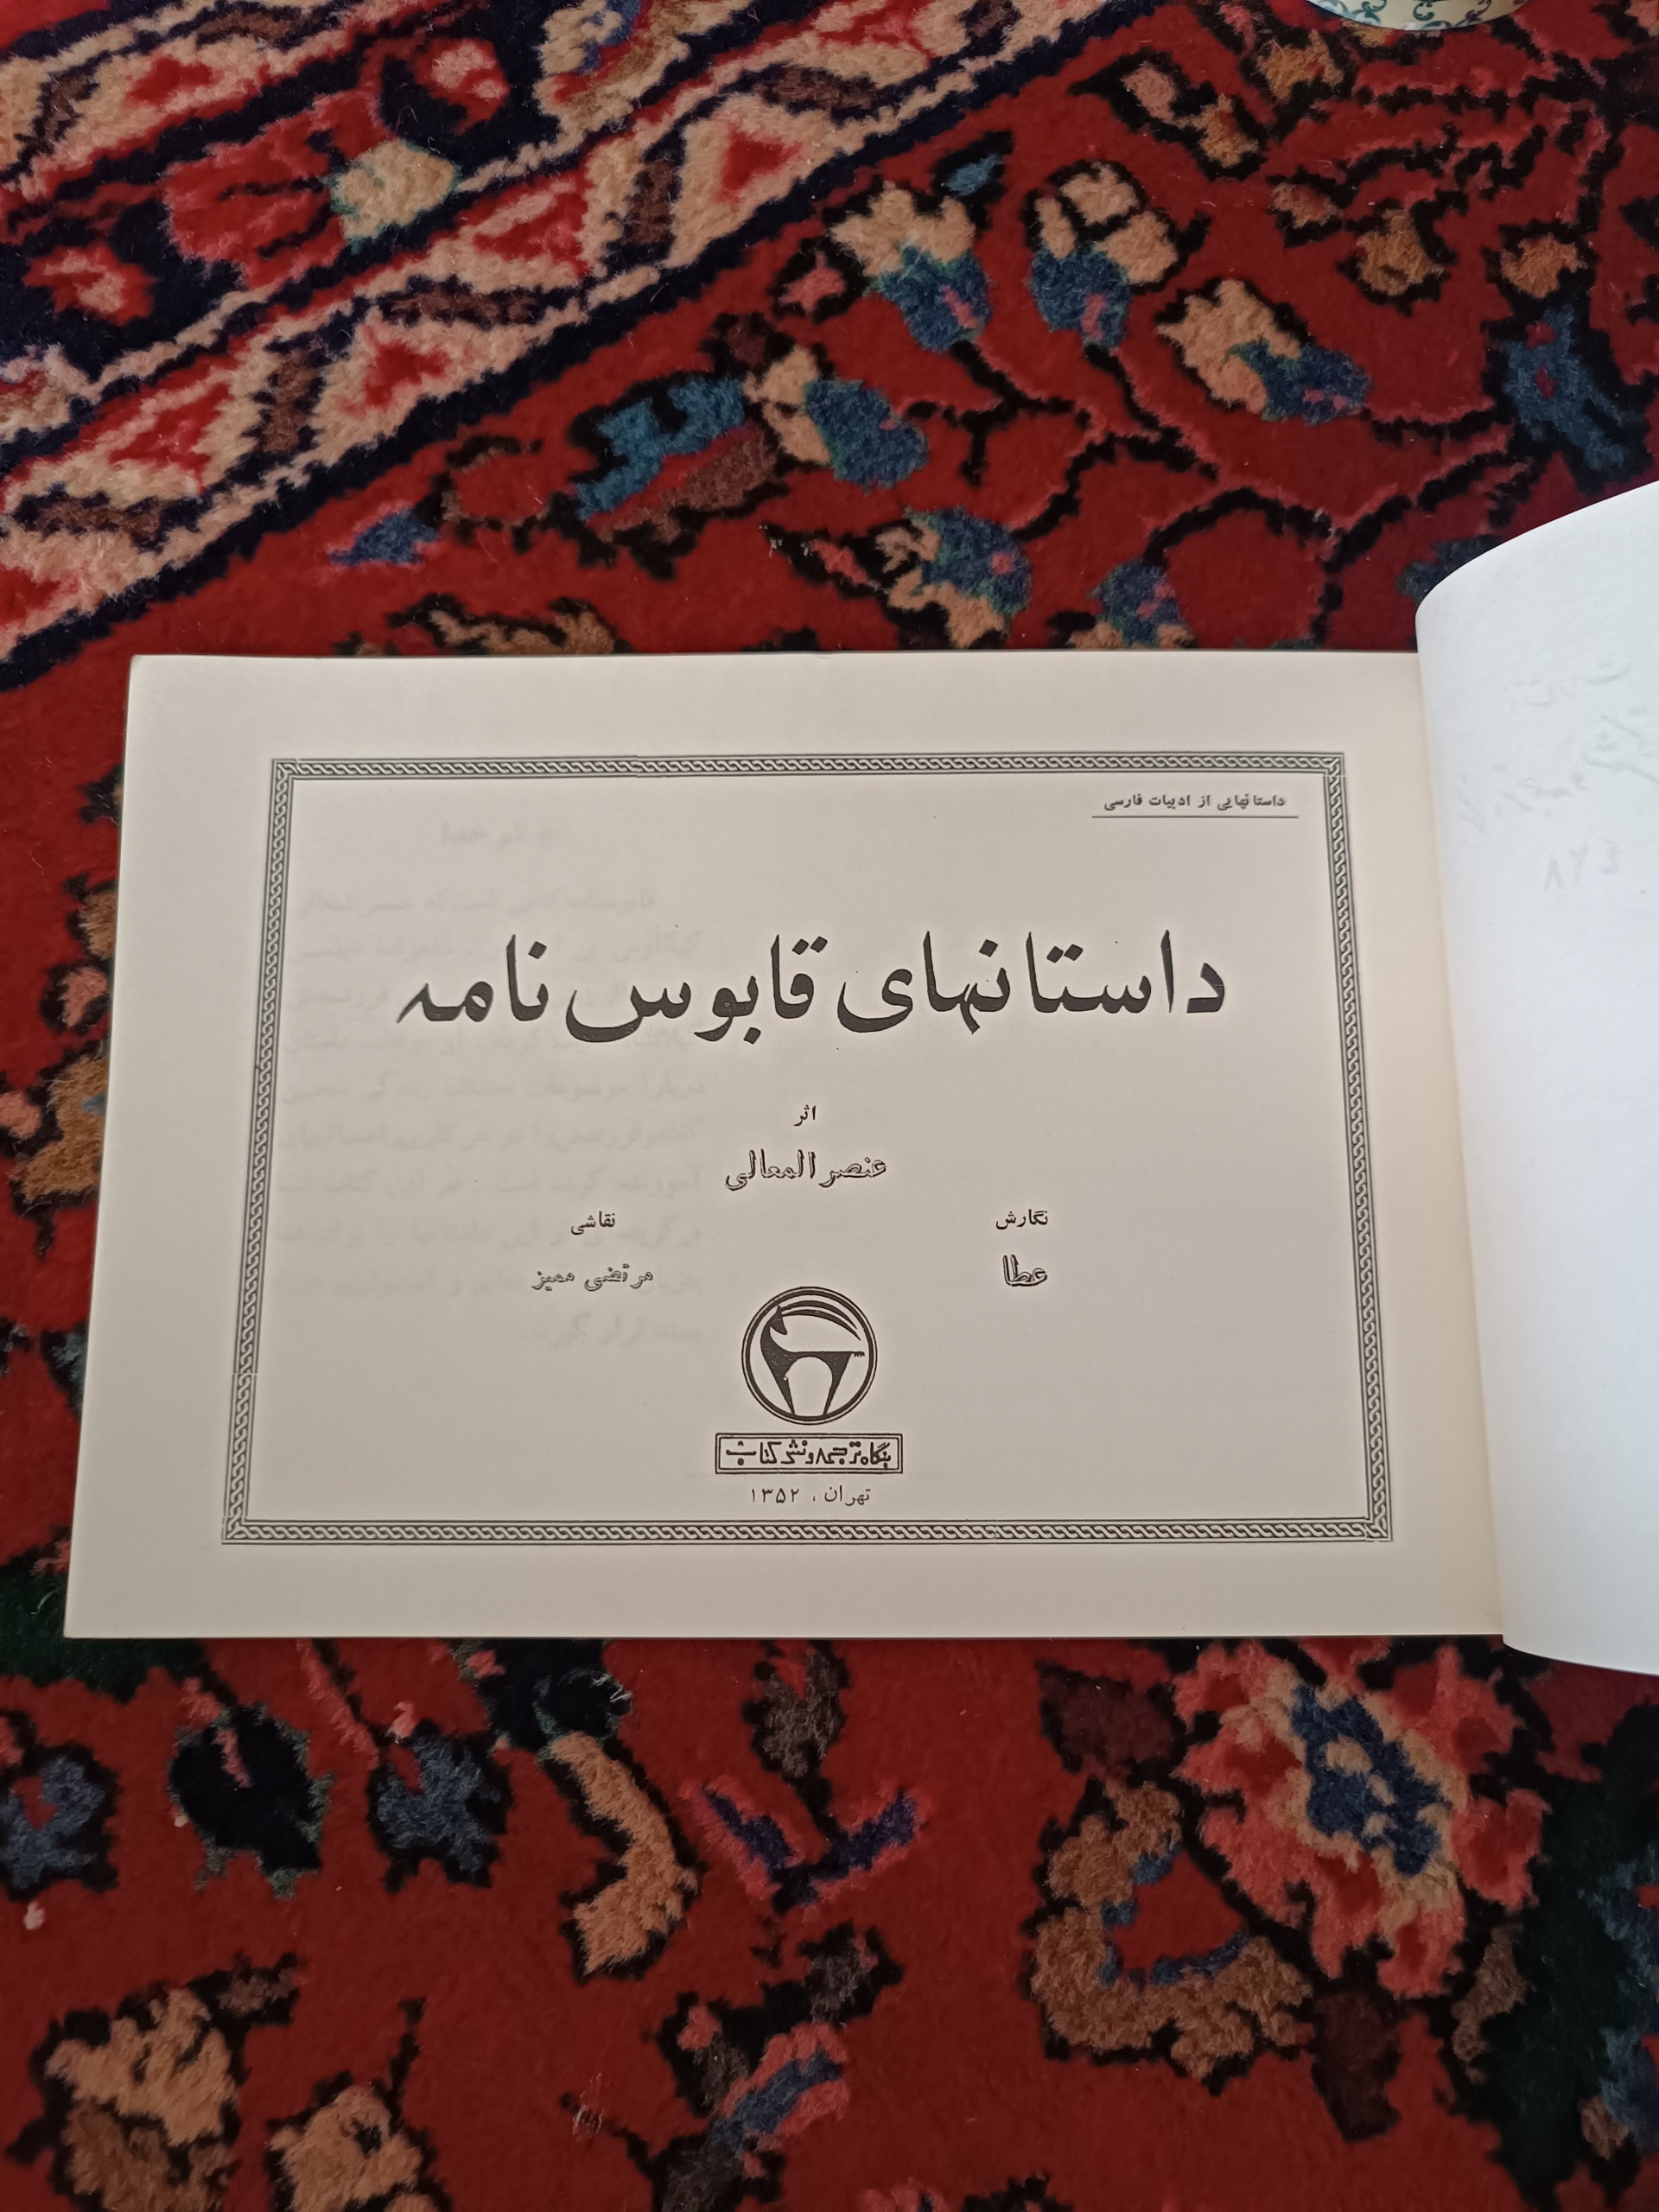 داستانهایی از ادبیات فارسی
داستانهای قابوس نامه
اثر
عنصر المعالی
نگارش
عطا
نقاشی
مرتضی ممیز
بنگاه ترجمه و نشر کتاب
تهران ، ۱۳۵۲